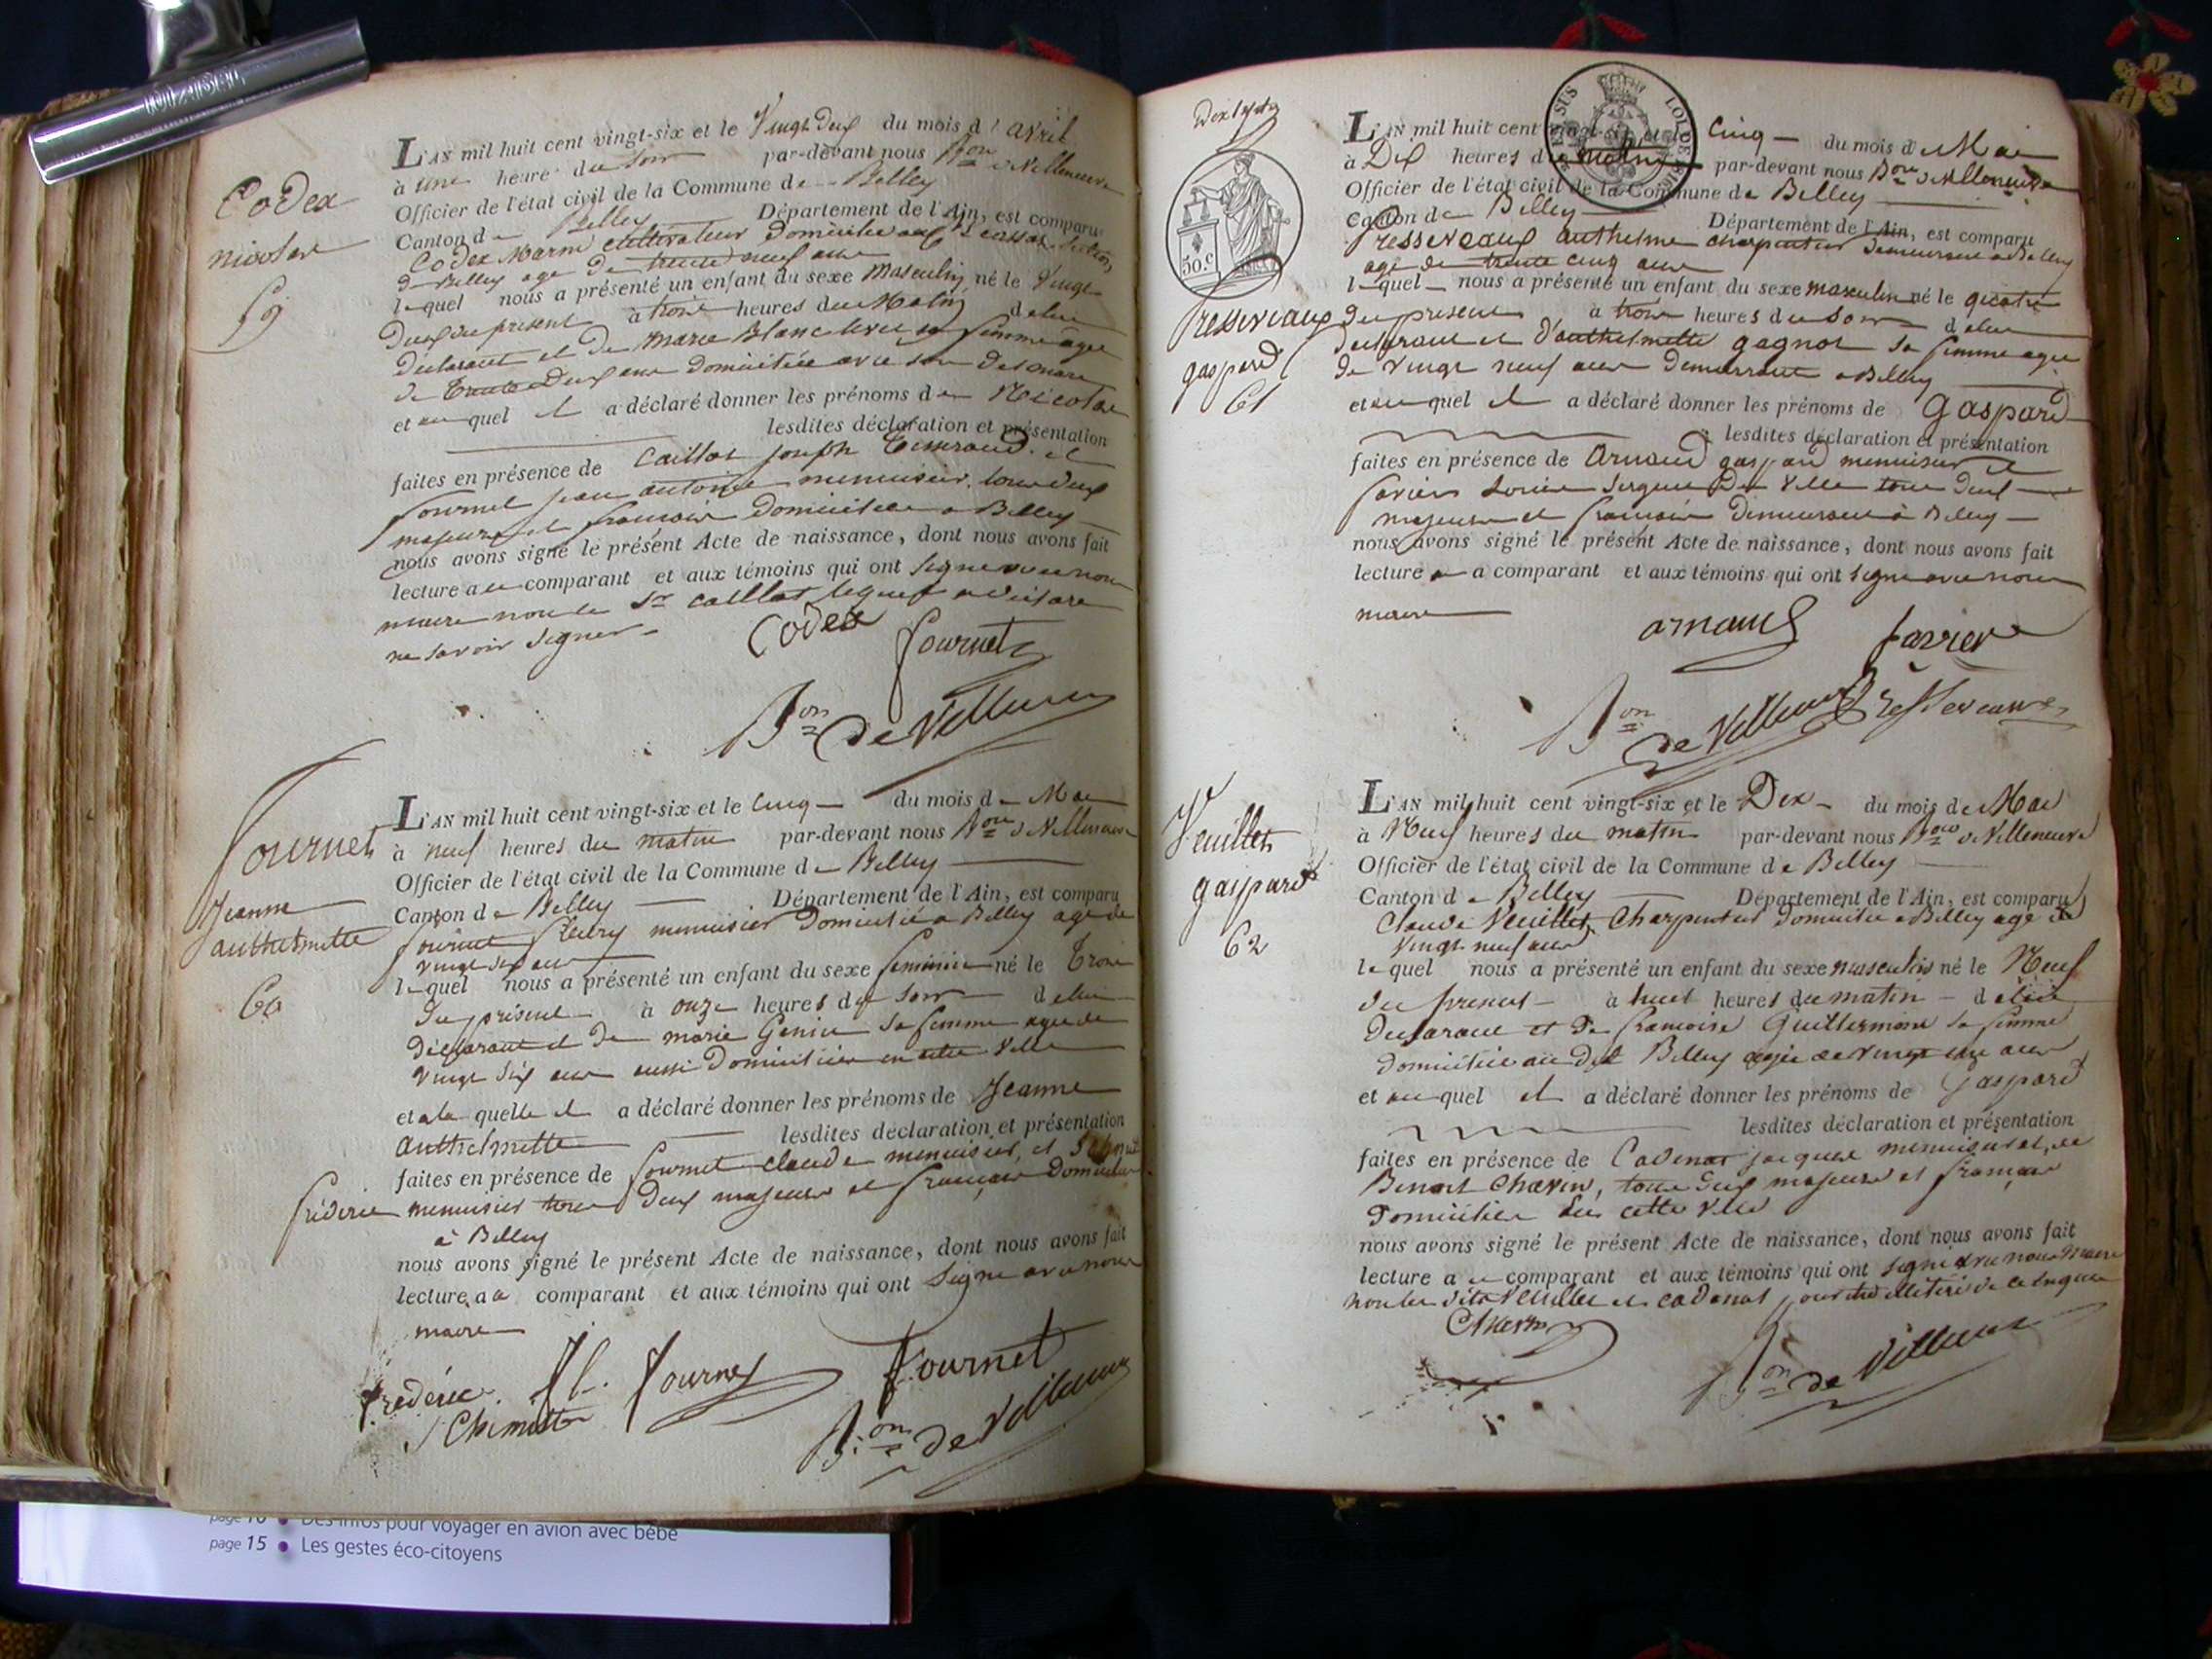 Codex
nicolas
59
L'AN mil huit cent vingt-six et le Vingt deux du mois d' avril
à une heure du soir par-devant nous Bon de Villeneuve
Officier de l'état civil de la Commune de Belley
Canton de Belley Département de l'Ain, est comparu
Codex Marin cultivateur domicilié aux section
de Belley age de trente neuf ans
lequel nous a présenté un enfant du sexe masculin né le Vingt
deux du present à trois heures du Matin de lui
déclarant et de marie Blanc sa femme agée
de trente deux ans domiciliée avec son
et auquel il a déclaré donner les prénoms de Nicolas
lesdites déclaration et présentation
faites en présence de Caillat joseph et
fournet jean antoine menuisier, tous deux
majeurs et francais domiciliés a Belley
nous avons signé le présent Acte de naissance, dont nous avons fait
lecture au comparant et aux témoins qui ont signé avec nous
maire non le Sr caillat lequel a déclaré
ne savoir signer
Codex
fournet
Bon de Villeneuve
Fournet
Jeanne
anthelmette
60
L'AN mil huit cent vingt-six et le Cinq du mois de Mai
à neuf heures du matin par-devant nous Bon de Villeneuve
Officier de l'état civil de la Commune de Belley
Canton de Belley Département de l'Ain, est comparu
fournet fleury menuisier domicilié a Belley age de
vingt six ans
lequel nous a présenté un enfant du sexe feminin né le trois
du présent à onze heures du soir de lui
déclarant et de marie Genin sa femme agée de
vingt six ans aussi domiciliée en cette ville
et a la quelle il a déclaré donner les prénoms de Jeanne
anthelmette lesdites déclaration et présentation
faites en présence de fournet claude menuisier, et
fréderic menuisier tous deux majeurs et français domiciliés
à Belley
nous avons signé le présent Acte de naissance, dont nous avons fait
lecture au comparant et aux témoins qui ont signé avec nous
maire
fréderic fl. fournet fournet
Bon de Villeneuve
50.c
Presseveaux
gaspard
61
L'AN mil huit cent vingt-six et le Cinq du mois de Mai
à Dix heures du matin par-devant nous Bon de Villeneuve
Officier de l'état civil de la Commune de Belley
Canton de Belley Département de l'Ain, est comparu
Presseveaux anthelme charpentier demeurant a Belley
age de trente cinq ans
lequel nous a présenté un enfant du sexe masculin né le quatre
du present à trois heures du soir de lui
déclarant et d'anthelmette gagnor sa femme agée
de vingt neuf ans demeurant a Belley
et auquel il a déclaré donner les prénoms de Gaspard
lesdites déclaration et présentation
faites en présence de Arnaud gaspard menuisier et
favier sergent de Ville tous deux
majeurs et francais demeurant à Belley
nous avons signé le présent Acte de naissance, dont nous avons fait
lecture au comparant et aux témoins qui ont signé avec nous
maire
arnaud favier
Bon de Villeneuve
Veuillet
gaspard
62
L'AN mil huit cent vingt-six et le Dix du mois de Mai
à Neuf heures du matin par-devant nous Bon de Villeneuve
Officier de l'état civil de la Commune de Belley
Canton de Belley Département de l'Ain, est comparu
Claude Veuillet Charpentier domicilié a Belley age de
vingt neuf ans
lequel nous a présenté un enfant du sexe masculin né le Neuf
du present à huit heures du matin de lui
déclarant et de francoise Guillermond sa femme
domiciliée au dit Belley agée de vingt un ans
et auquel il a déclaré donner les prénoms de Gaspard
lesdites déclaration et présentation
faites en présence de Cadenat jacques menuisier et de
Benoit Chavin, tous deux majeurs et français
domiciliés en cette ville
nous avons signé le présent Acte de naissance, dont nous avons fait
lecture au comparant et aux témoins qui ont signé avec nous maire
non les dits Veuillet et cadenat pour être illitéré de ce enquis
Bon de Villeneuve
Des infos pour voyager en avion avec bébé
page 15 • Les gestes éco-citoyens